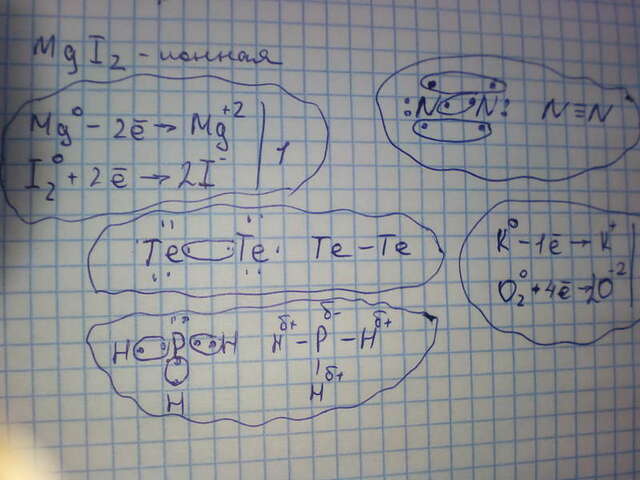 MgI₂ - ионная
Mg⁰ - 2ē → Mg⁺² | 1
I₂⁰ + 2ē → 2I⁻
:N N: N≡N
Te Te Te - Te
K⁰ - 1ē → K⁺
O₂⁰ + 4ē → 2O⁻²
H P H Hᵟ⁺ - Pᵟ⁻ - Hᵟ⁺
H Hᵟ⁺